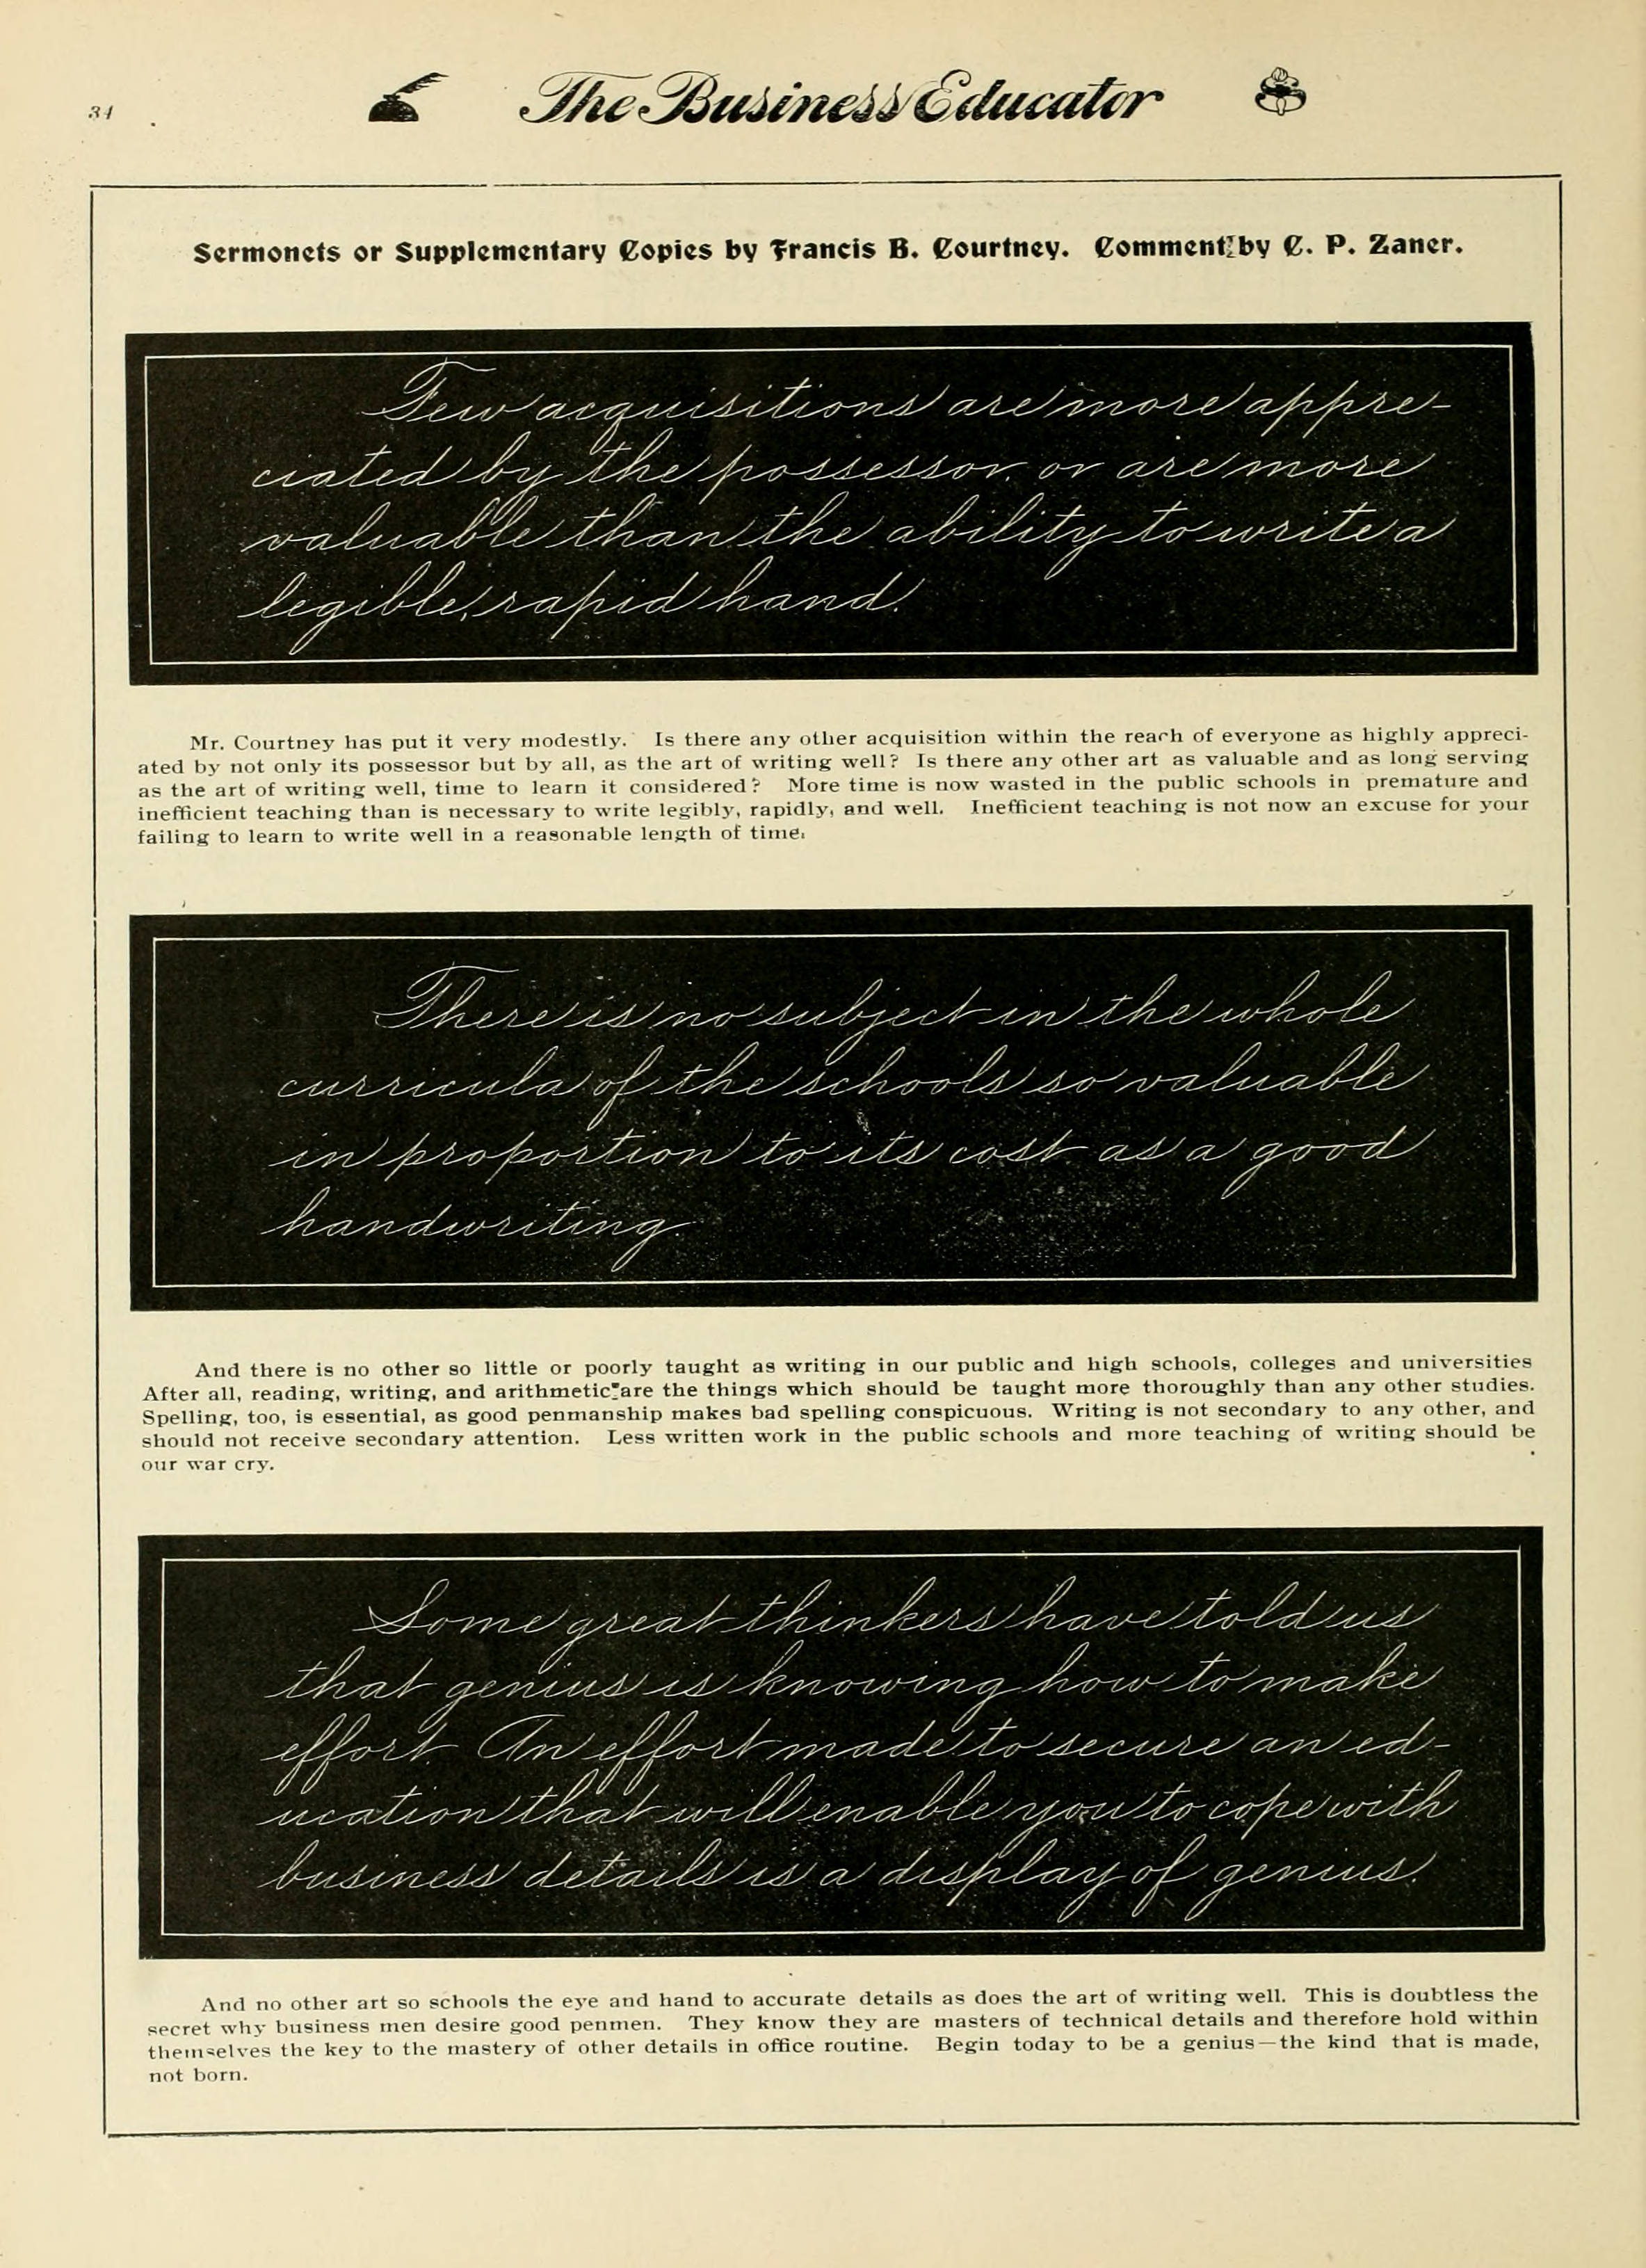 34
The Business Educator
Sermonets or Supplementary Copies by Francis B. Courtney. Comment by C. P. Zaner.
Few acquisitions are more appre-
ciated by the possessor, or are more
valuable than the ability to write a
legible, rapid hand.
Mr. Courtney has put it very modestly. Is there any other acquisition within the reach of everyone as highly appreci-
ated by not only its possessor but by all, as the art of writing well? Is there any other art as valuable and as long serving
as the art of writing well, time to learn it considered? More time is now wasted in the public schools in premature and
inefficient teaching than is necessary to write legibly, rapidly, and well. Inefficient teaching is not now an excuse for your
failing to learn to write well in a reasonable length of time.
There is no subject in the whole
curricula of the schools so valuable
in proportion to its cost as a good
handwriting.
And there is no other so little or poorly taught as writing in our public and high schools, colleges and universities
After all, reading, writing, and arithmetic are the things which should be taught more thoroughly than any other studies.
Spelling, too, is essential, as good penmanship makes bad spelling conspicuous. Writing is not secondary to any other, and
should not receive secondary attention. Less written work in the public schools and more teaching of writing should be
our war cry.
Some great thinkers have told us
that genius is knowing how to make
effort. An effort made to secure an ed-
ucation that will enable you to cope with
business details is a display of genius.
And no other art so schools the eye and hand to accurate details as does the art of writing well. This is doubtless the
secret why business men desire good penmen. They know they are masters of technical details and therefore hold within
themselves the key to the mastery of other details in office routine. Begin today to be a genius—the kind that is made,
not born.